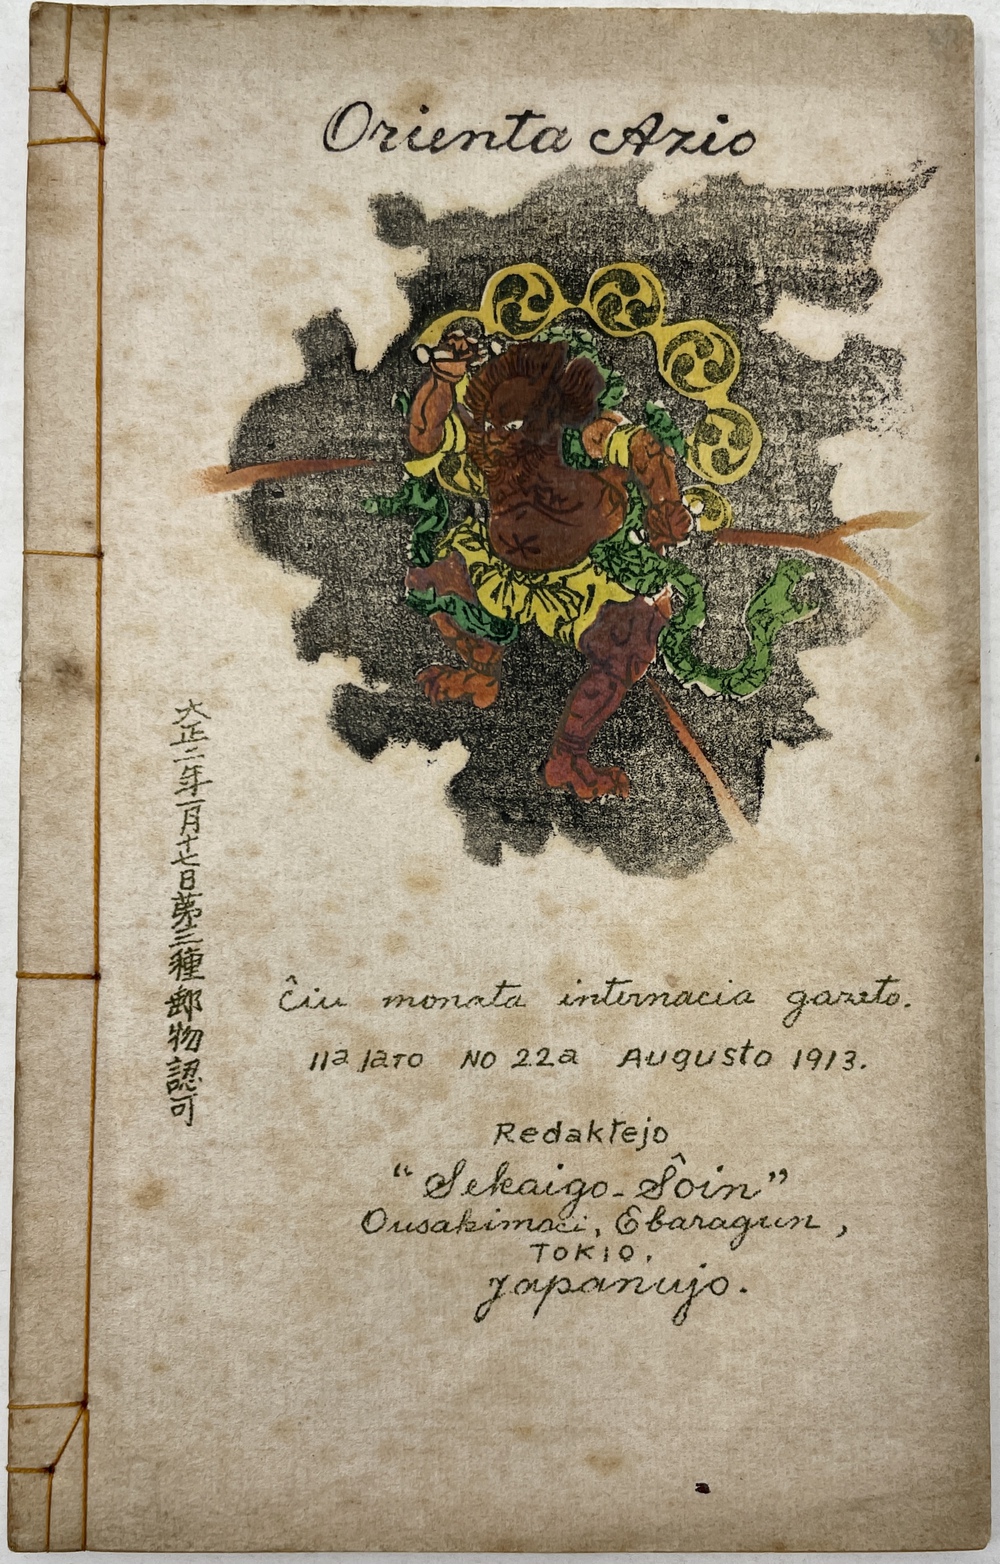 Orienta Azio
大正二年一月十七日第三種郵物認可
Ĉiu monata internacia gazeto.
IIa Jaro No 22a Augusto 1913.
Redaktejo
“Sekaigo-Ŝoin”
Ousakimaĉi, Ebaragun,
TOKIO.
Japanujo.